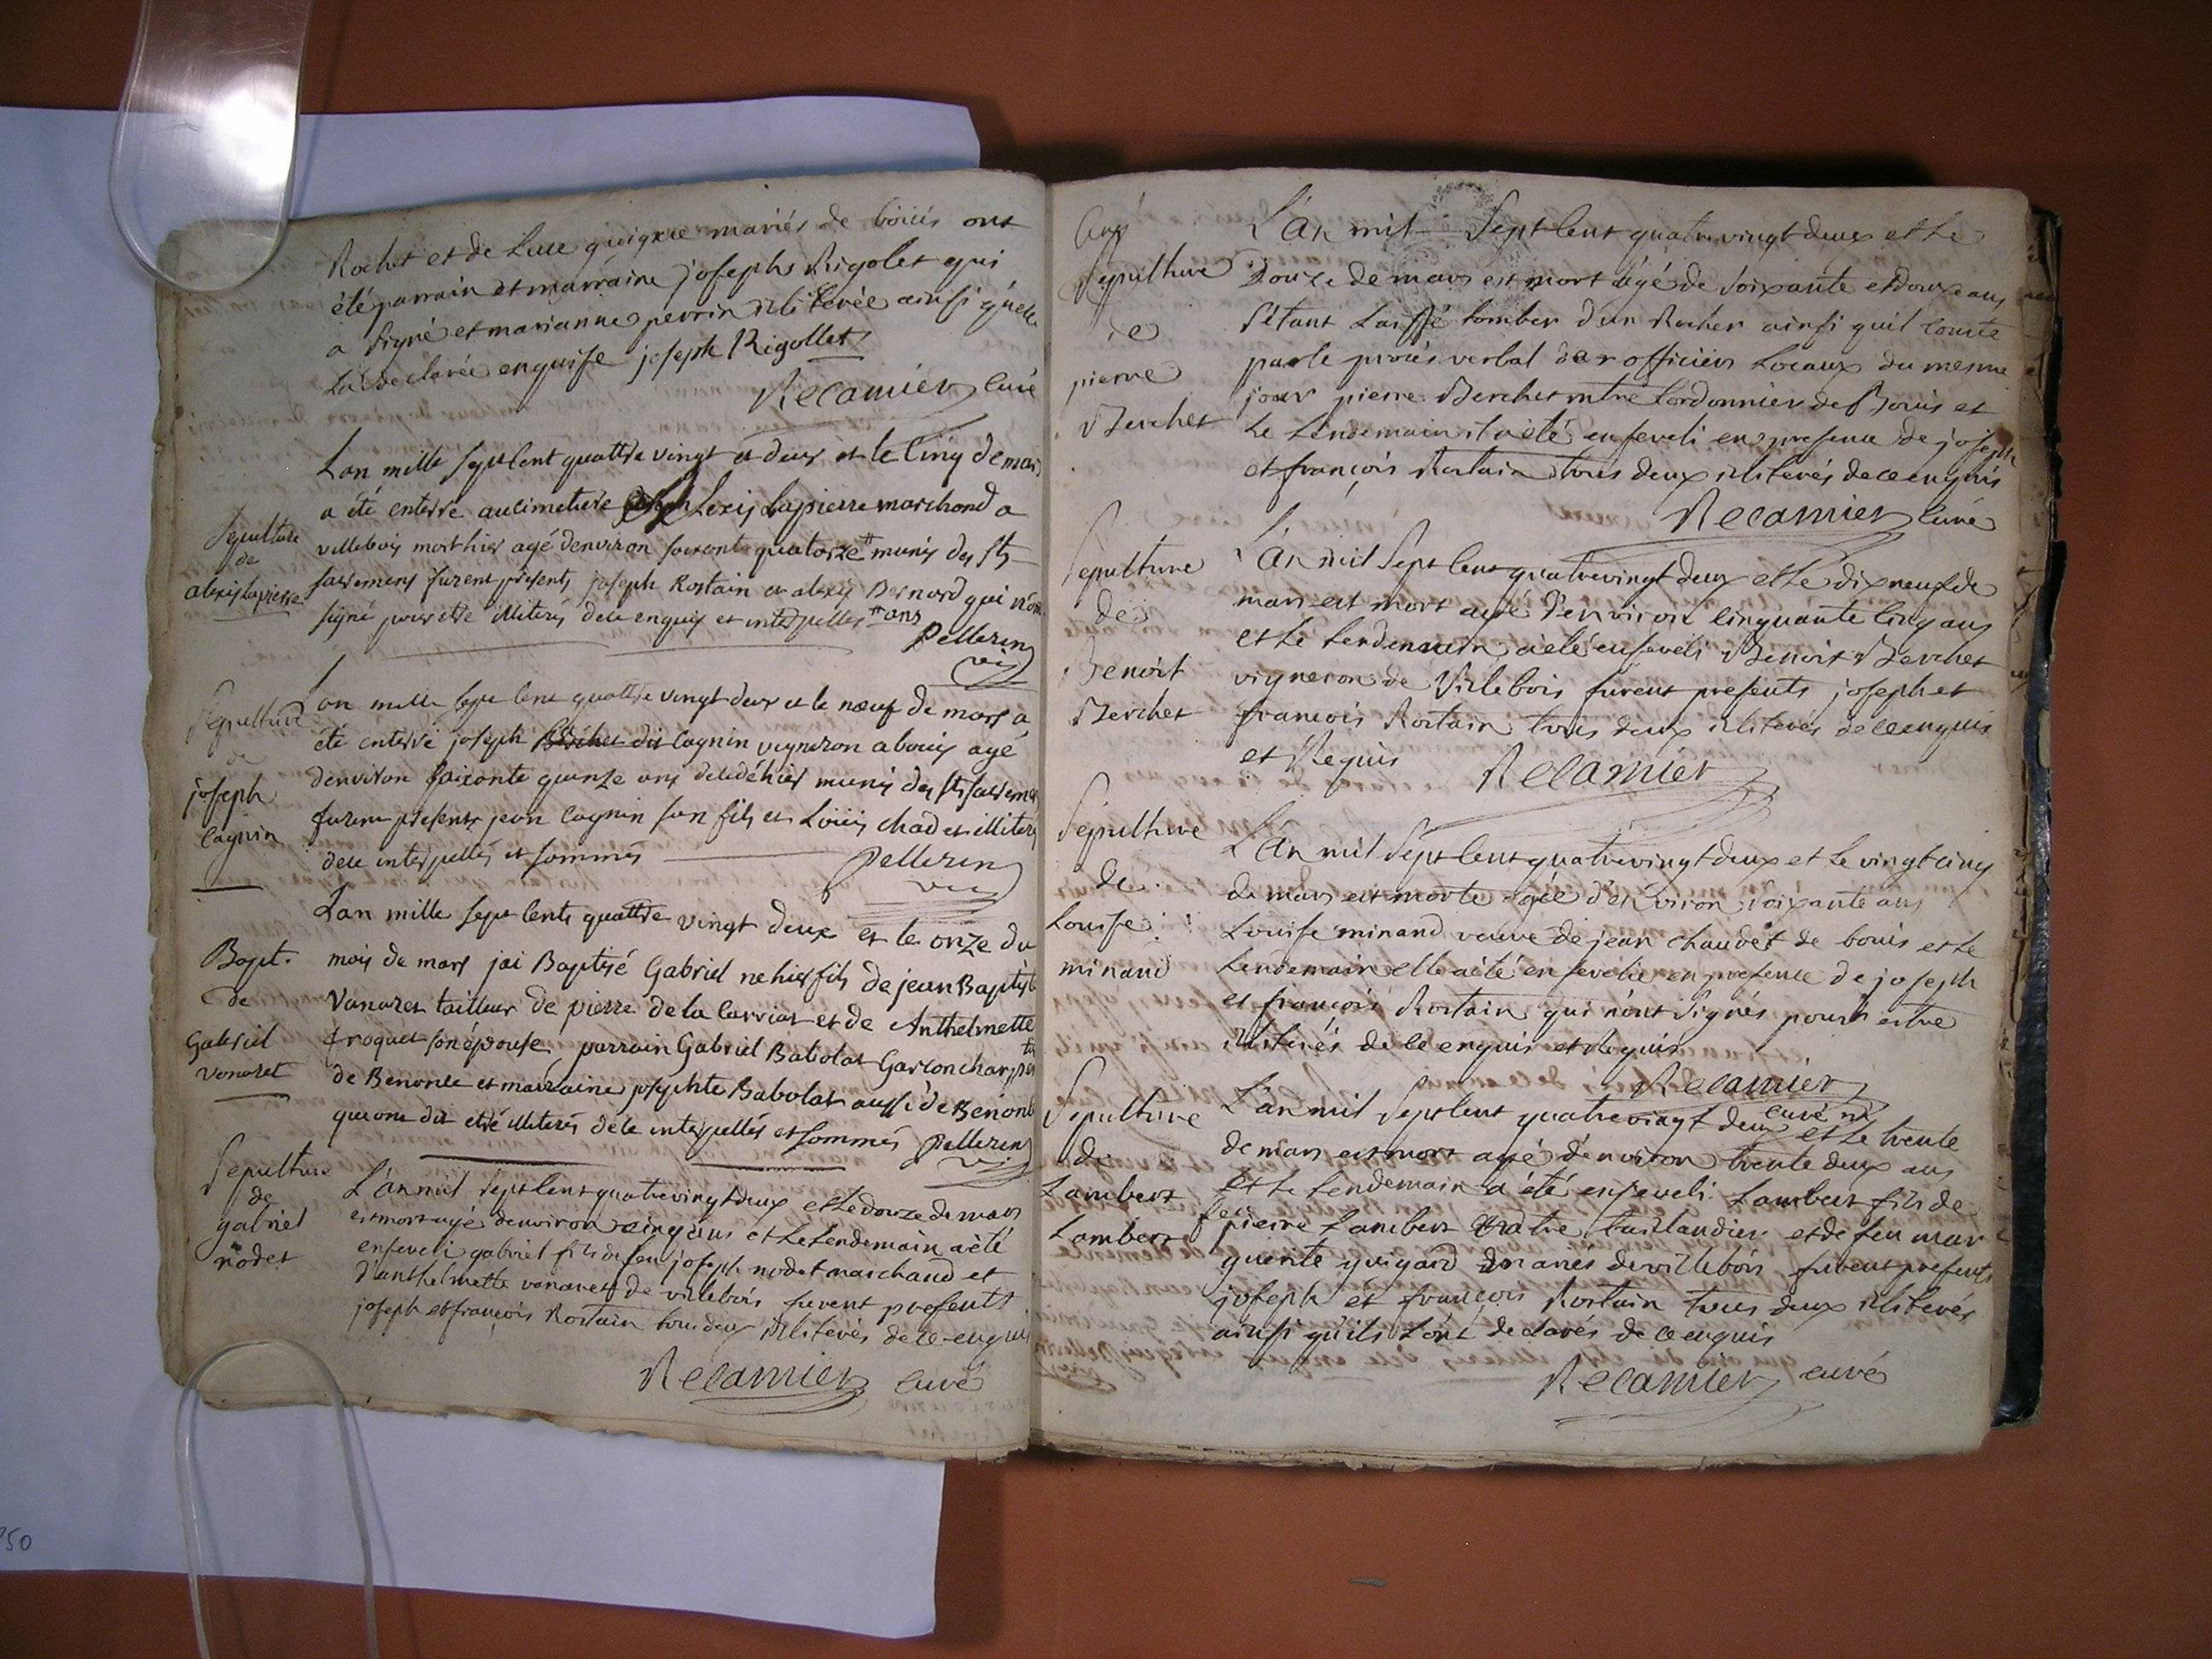 Rochet et de Luce guigue mariés de boüis ont
été parrain et marraine josephs Rigolet qui
a signé et marianne perrin illiterée ainsi quelle
la declarée enquise joseph Rigollet
Recamier curé
Lan mille sept cent quattre vingt et deux et le cinq de mars
a été enterré au cimetiere alexis Lapierre marchand a
Sepulture
de
alexis lapierre
villebois mort hier agé denviron soixante quatorze # munis des sts
sacremens furent presents joseph Rostain et alexis Bernard qui n'ont
signé pour etre illiterés de ce enquis et interpellés # ans
Pellerin
vic
Sepulture
de
joseph
cagnin
Lan mille sept cent quattre vingt deux et le neuf de mars a
été enterré joseph Berchet dit cagnin vigneron a bouis agé
denviron soixante quinze ans decedé hier munis des sts sacremens
furent presents jean cagnin son fils et Loüis chadet illiterés
dece interpellés et sommés
Pellerin
vic
Bapt.
de
Gabriel
vanaret
Lan mille sept cents quattre vingt deux et le onze du
mois de mars jai Baptisé Gabriel ne hier fils de jean Baptiste
Vanaret tailleur de pierre de la carriat et de Anthelmette
froquet son épouse parrain Gabriel Babolat Garcon charpetier
de Benonce et marraine josephte Babolat aussi de Benonce
qui ont dit etre illiterés de ce interpellés et sommés Pellerin
vic
Sepulture
de
gabriel
nodet
L'an mil sept cent quatrevingt deux et le douze de mars
est mort agé denviron cinq ans et le lendemain a été
enseveli gabriel fils de feu joseph nodet marchand et
d'anthelmette vanaret de villebois furent presents
joseph et françois Rostain tous deux illiterés de ce enquis
Recamier curé
Sepulture
de
pierre
Berchet
L'an mil sept cent quatrevingt deux et le
Douze de mars est mort agé de soixante et douze ans
s'etant laissé tomber d'un Rocher ainsi quil conste
par le procés verbal des officiers Locaux du mesme
jour pierre Berchet mtre Cordonnier de Bouis et
Le Lendemain il a été enseveli en presence de joseph
et françois Rostain tous deux illiterés de ce enquis
Recamier curé
Sepulture
de
Benoit
Berchet
L'an mil sept cent quatrevingt deux et le dix neuf de
mars est mort agé d'environ cinquante cinq ans
et le lendemain a été enseveli Benoit Berchet
vigneron de Villebois furent presents joseph et
francois Rostain tous deux illiterés de ce enquis
et Requis Recamier
Sepulture
de
Louise
minand
L'an mil sept cent quatrevingt deux et le vingt cinq
de mars est morte agée d'environ soixante ans
Louise minand veuve de jean chaudet de bouis et le
Lendemain elle a été ensevelie en presence de joseph
et françois Rostain qui n'ont signés pour estre
illiterés de ce enquis et Requis
Recamier
curé
Sepulture
de
Lambert
Lambert
L'an mil sept cent quatrevingt deux et le trente
de mars est mort agé d'environ trente deux ans
et le lendemain a été enseveli Lambert fils de
feu
pierre Lambert maitre taillandier et de feu mar
guerite guigard mariés de villebois furent presents
joseph et françois Rostain tous deux illiterés
ainsi qu'ils l'ont declarés de ce enquis
Recamier curé